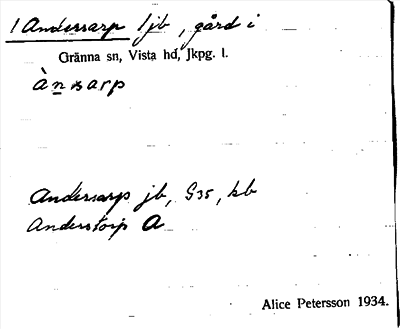 1 Andersarp jb, gård i
Gränna sn, Vista hd, Jkpg. l.
ànsarp
Andersarp jb, G35, kb
Anderstorp A
Alice Petersson 1934.